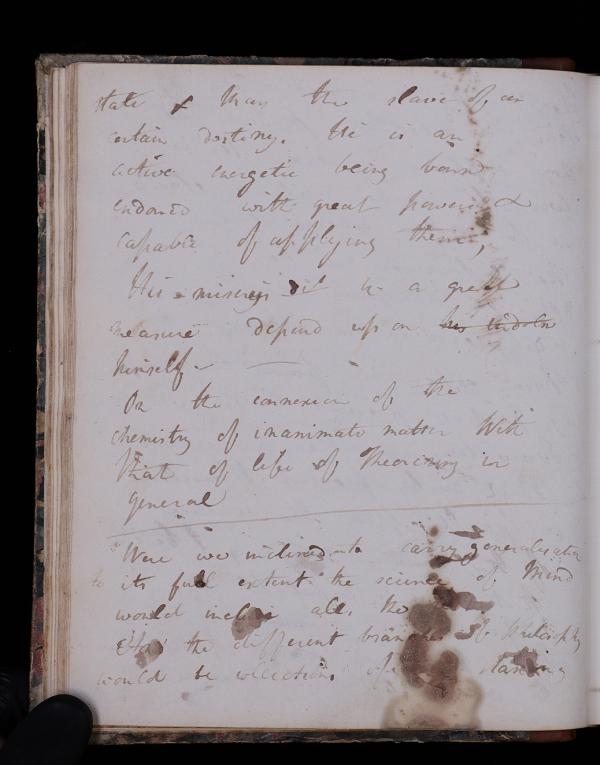 state & than the slave of an
certain destiny. He is an
active energetic being born
endowed with great powers &
capable of applying them,
His miseries in a great
measure depend upon his indolen
himself -
On the connexion of the
chemistry of inanimate matter With
that of life of Theorising in
general
Were we inclined to carry generalisation
to its full extent the science of Mind
would include all the
the different branches of Philosophy
would be collections of